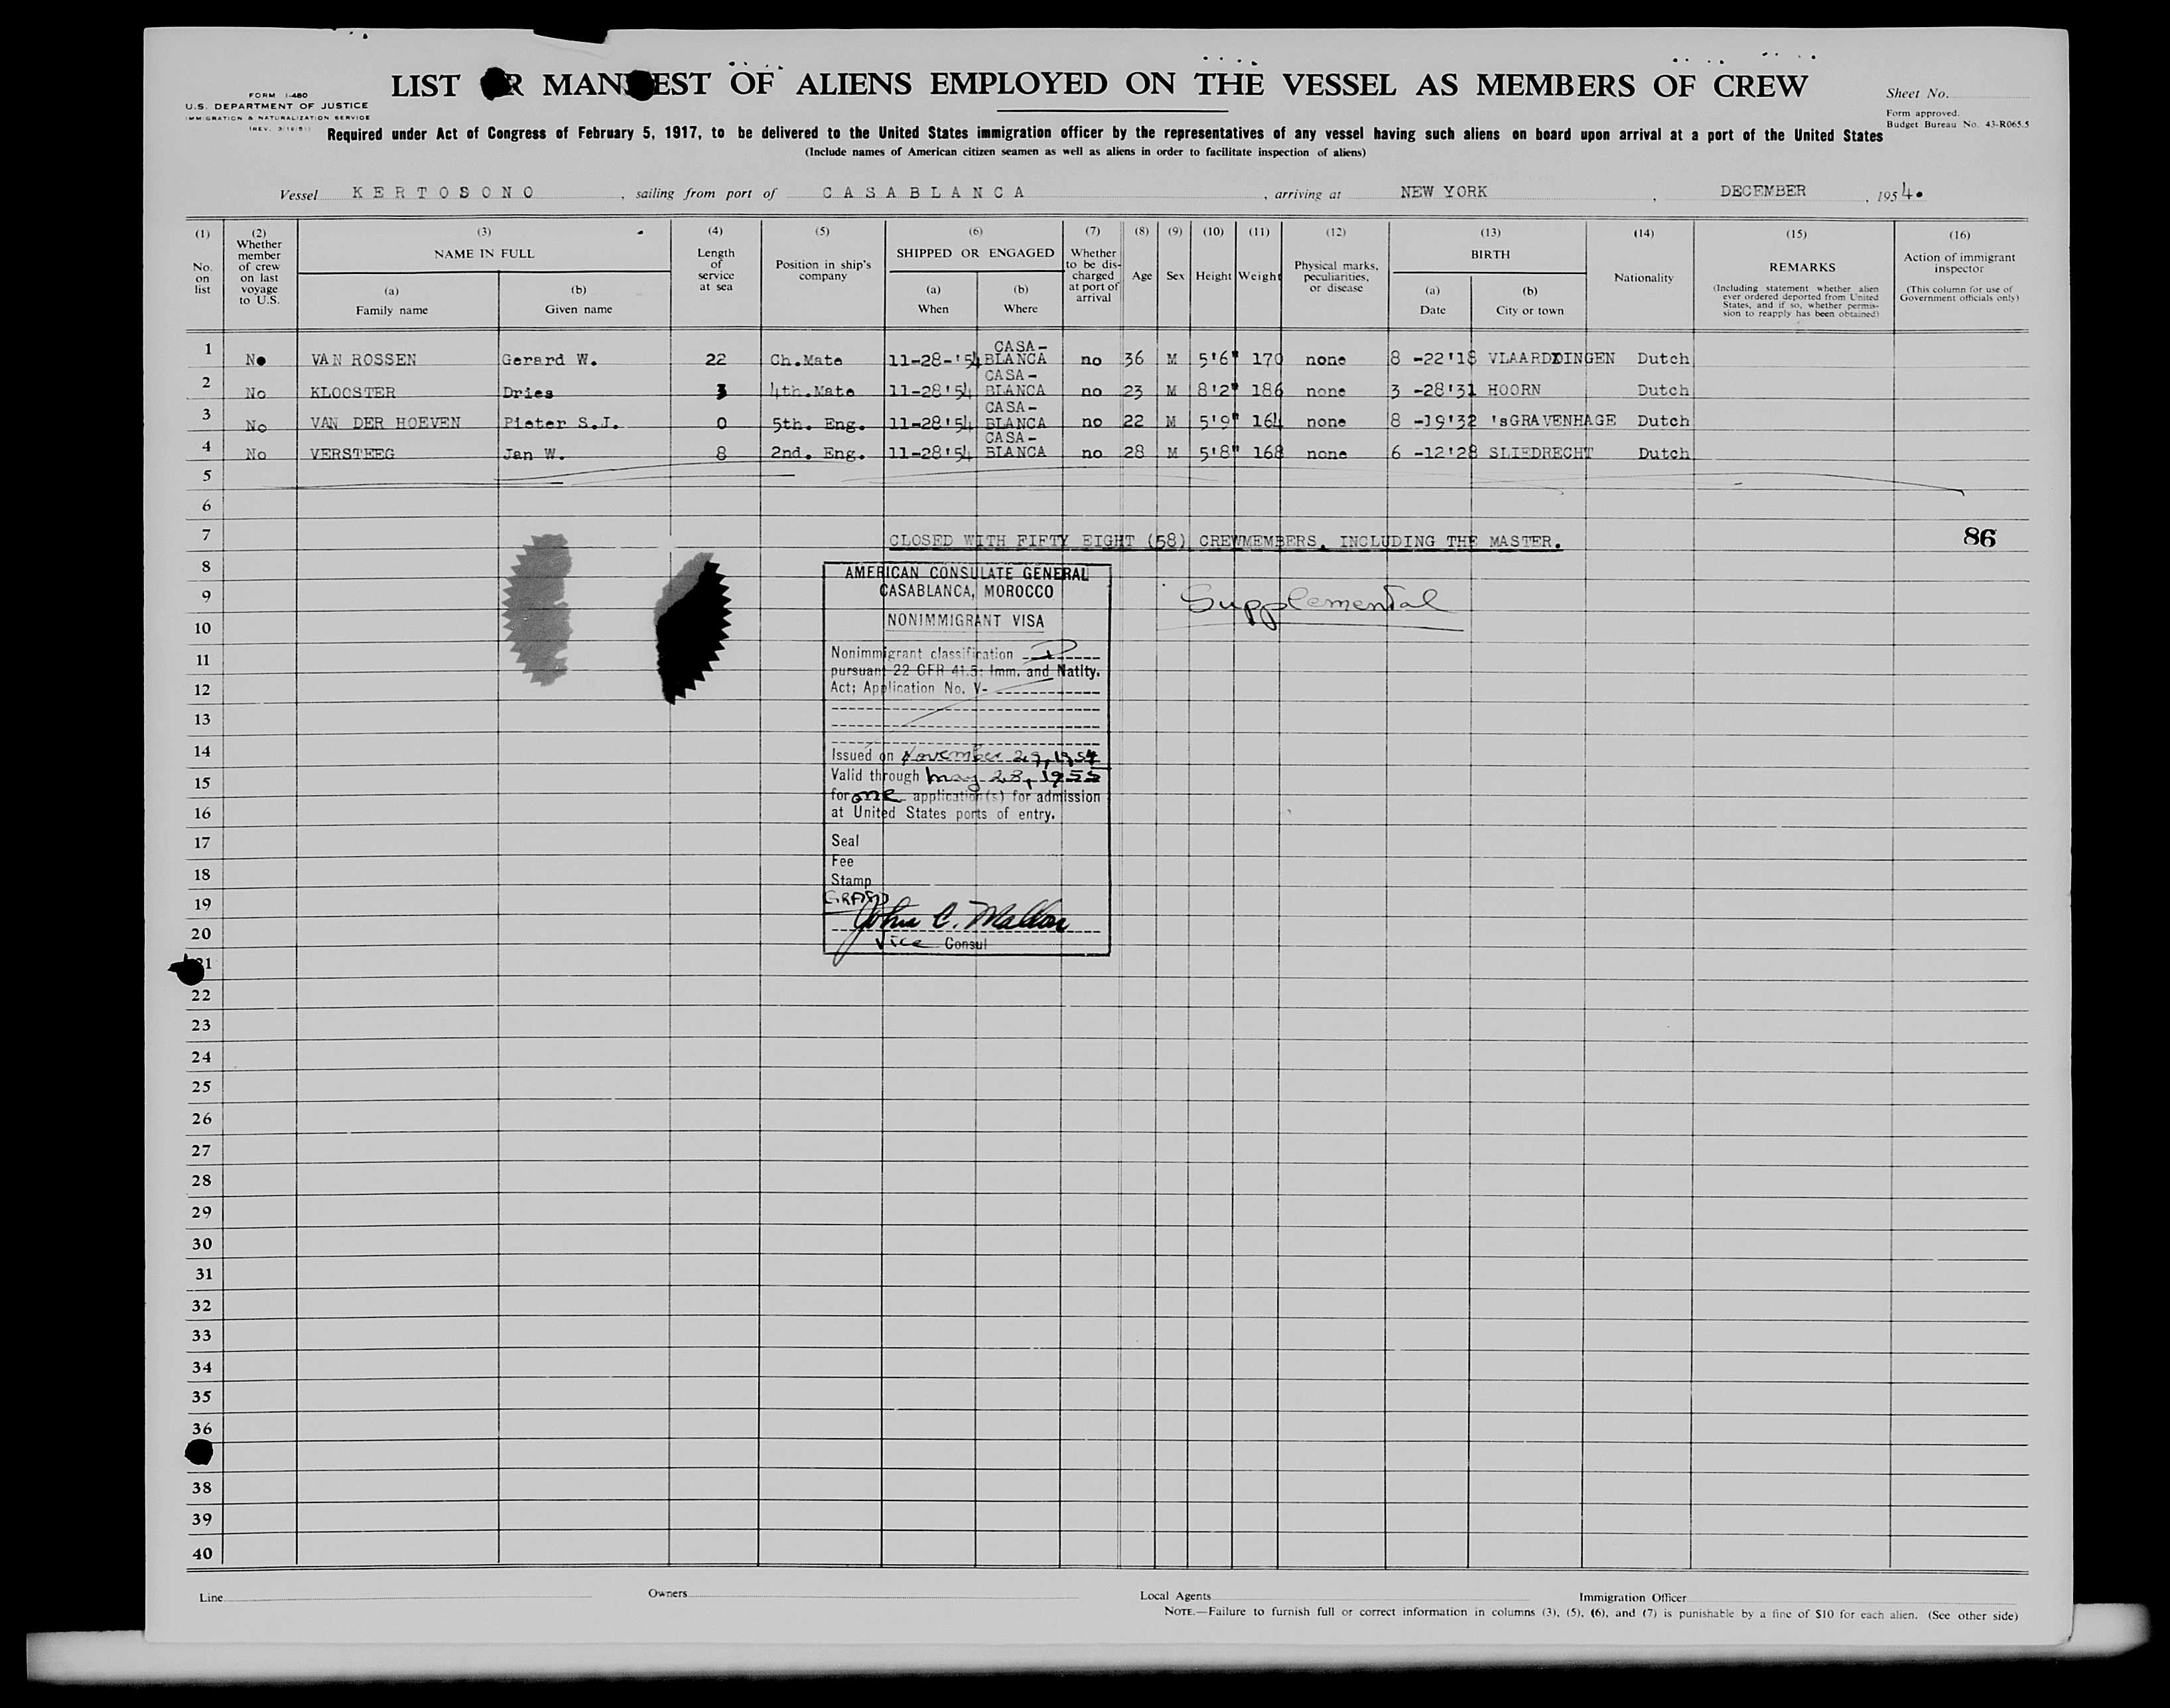 FORM I-480
U.S. DEPARTMENT OF JUSTICE
IMMIGRATION & NATURALIZATION SERVICE
LIST R MAN EST OF ALIENS EMPLOYED ON THE VESSEL AS MEMBERS OF CREW
Sheet No.
Form approved.
Budget Bureau No. 43-R065.5
Required under Act of Congress of February 5, 1917, to be delivered to the United States immigration officer by the representatives of any vessel having such aliens on board upon arrival at a port of the United States
(Include names of American citizen seamen as well as aliens in order to facilitate inspection of aliens)
Vessel KERTOSONO, sailing from port of CASABLANCA, arriving at NEW YORK, DECEMBER, 1954.
(1) No. on list
(2) Whether member of crew on last voyage to U.S.
(3) NAME IN FULL
(a) Family name
(b) Given name
(4) Length of service at sea
(5) Position in ship's company
(6) SHIPPED OR ENGAGED
(a) When
(b) Where
(7) Whether to be discharged at port of arrival
(8) Age
(9) Sex
(10) Height
(11) Weight
(12) Physical marks, peculiarities, or disease
(13) BIRTH
(a) Date
(b) City or town
(14) Nationality
(15) REMARKS
(Including statement whether alien ever ordered deported from United States, and if so, whether permission to reapply has been obtained)
(16) Action of immigrant inspector
(This column for use of Government officials only)
1 No VAN ROSSEN Gerard W. 22 Ch.Mate 11-28-'54 CASA-BLANCA no 36 M 5'6" 170 none 8 -22'18 VLAARDDINGEN Dutch
2 No KLOOSTER Dries 3 4th.Mate 11-28'54 CASA-BLANCA no 23 M 8'2" 186 none 3 -28'31 HOORN Dutch
3 No VAN DER HOEVEN Pieter S.J. 0 5th. Eng. 11-28'54 CASA-BLANCA no 22 M 5'9" 164 none 8 -19'32 'sGRAVENHAGE Dutch
4 No VERSTEEG Jan W. 8 2nd. Eng. 11-28'54 CASA-BLANCA no 28 M 5'8" 168 none 6 -12'28 SLIEDRECHT Dutch
5
6
7 CLOSED WITH FIFTY EIGHT (58) CREWMEMBERS, INCLUDING THE MASTER. 86
8
9
10
11
12
13
14
15
16
17
18
19
20
21
22
23
24
25
26
27
28
29
30
31
32
33
34
35
36
38
39
40
AMERICAN CONSULATE GENERAL
CASABLANCA, MOROCCO
NONIMMIGRANT VISA
Nonimmigrant classification D
pursuant 22 CFR 41.5: Imm. and Natlty.
Act; Application No. V-
Issued on November 29, 1954
Valid through May 28, 1955
for one application(s) for admission
at United States ports of entry.
Seal
Fee
Stamp
John C. Mallon
Vice Consul
Supplemental
Line
Owners
Local Agents
Immigration Officer
NOTE.—Failure to furnish full or correct information in columns (3), (5), (6), and (7) is punishable by a fine of $10 for each alien. (See other side)